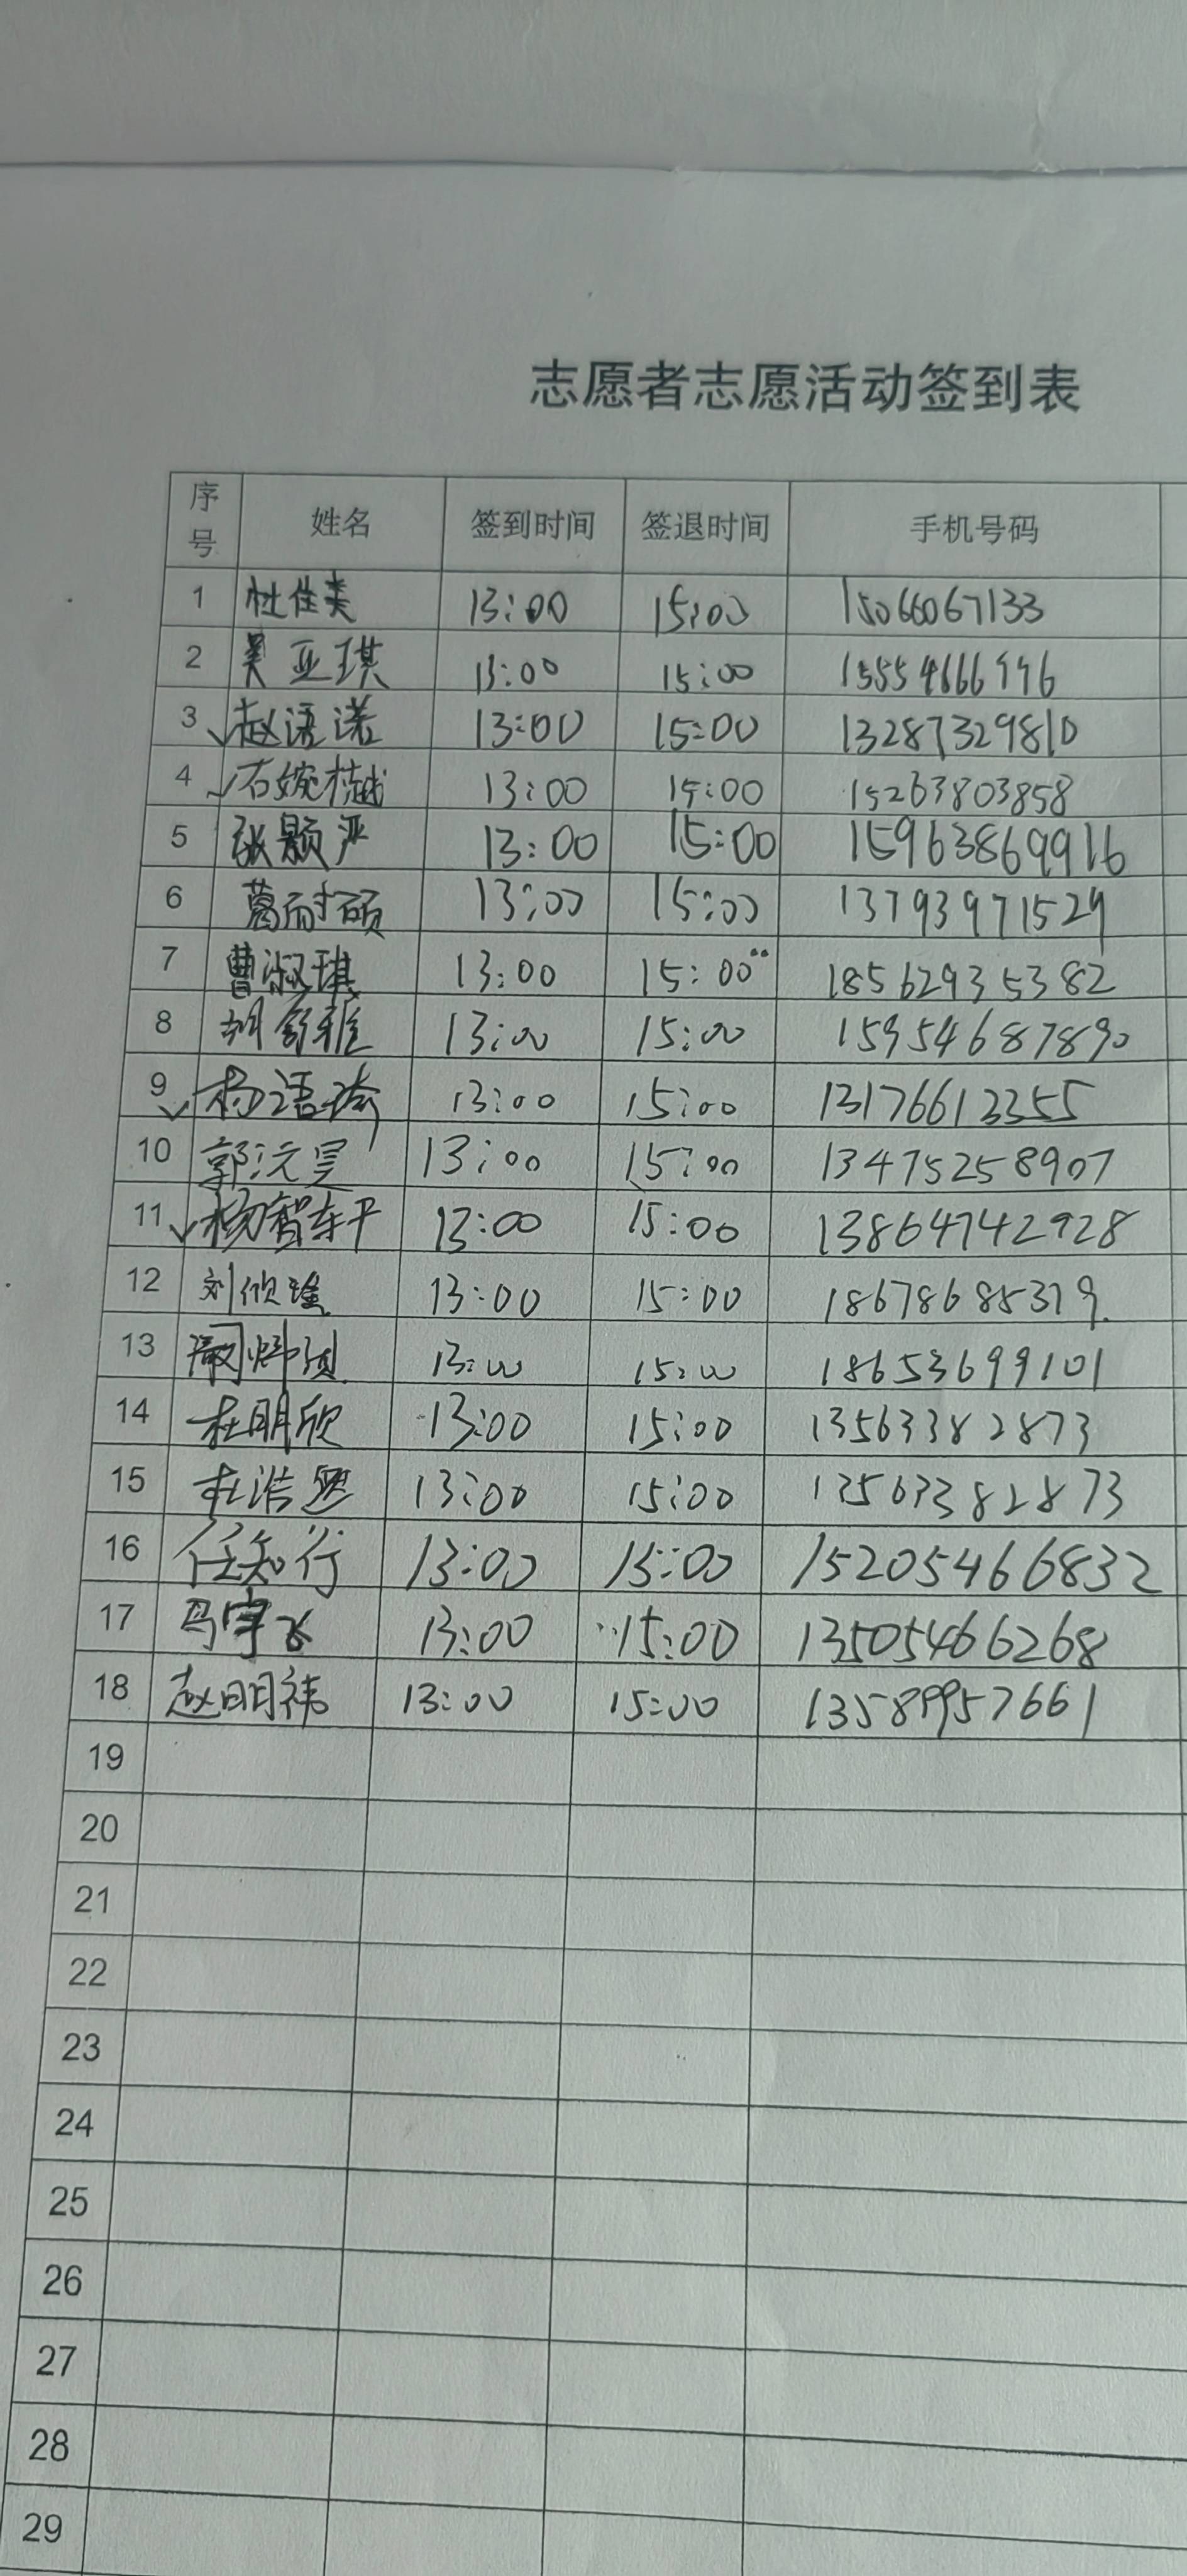 志愿者志愿活动签到表
序号 姓名 签到时间 签退时间 手机号码
1 杜佳美 13:00 15:00 15066067133
2 吴亚琪 13:00 15:00
3 赵语诺 13:00 15:00 13287329810
4 石婉樾 13:00 15:00 15263803858
5 张颢严 13:00 15:00 15963869916
6 葛耐硕 13:00 15:00 13793971529
7 曹淑琪 13:00 15:00 18562935382
8 胡舒雅 13:00 15:00 15954687890
9 杨语琦 13:00 15:00 13176613355
10 郭沅昊 13:00 15:00 13475258907
11 杨智 13:00 15:00 13864742928
12 刘欣瑜 13:00 15:00 18678685379
13 13:00 15:00 18653699101
14 杜明欣 13:00 15:00 13563382873
15 杜浩 13:00 15:00 13563382873
16 任知行 13:00 15:00 15205466832
17 马宇飞 13:00 15:00 13505466268
18 赵明祎 13:00 15:00 13589957661
19
20
21
22
23
24
25
26
27
28
29